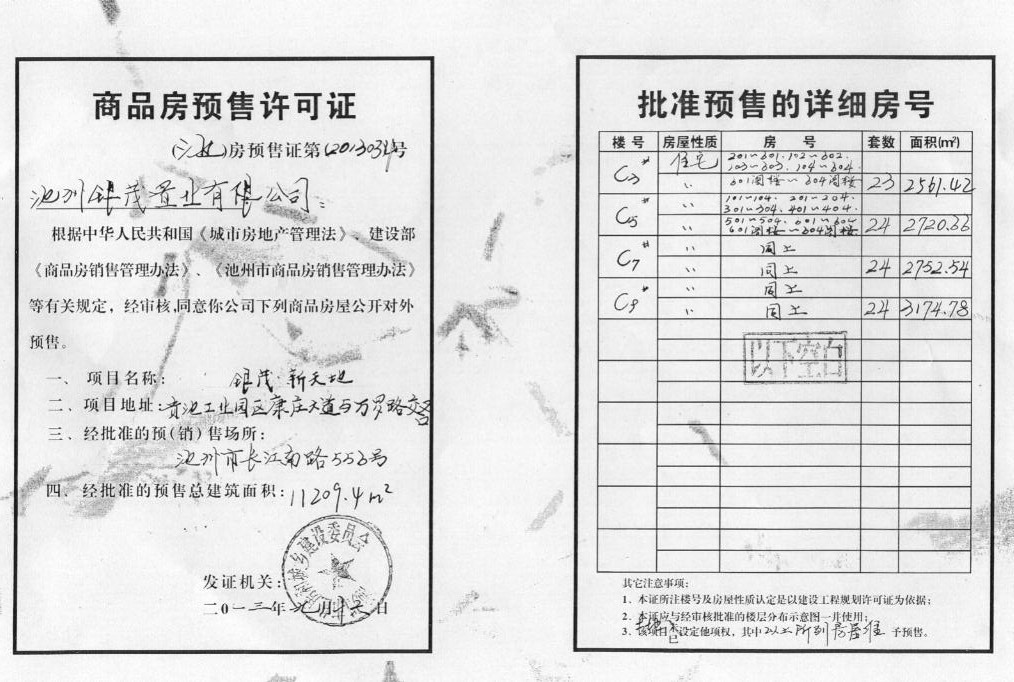 商品房预售许可证
(池)房预售证第(2013034)号
池州银茂置业有限公司：
根据中华人民共和国《城市房地产管理法》、建设部
《商品房销售管理办法》、《池州市商品房销售管理办法》
等有关规定，经审核,同意你公司下列商品房屋公开对外
预售。
一、项目名称：银茂·新天地
二、项目地址：贵池工业园区康庄大道与万罗路交
三、经批准的预(销)售场所：
池州市长江南路553号
四、经批准的预售总建筑面积：11209.4m²
发证机关：
乡建设委员会
二0一三年九月十六日
批准预售的详细房号
楼号 房屋性质 房号 套数 面积(m²)
C3# 住宅 201～601.102～602.
103～603.104～604
〃 601阁楼～604阁楼 23 2561.42
C5# 〃 101～104.201～204.
301～304.401～404.
〃 501～504.601～604
601阁楼～604阁楼 24 2720.66
C7# 〃 同上
〃 同上 24 2752.54
C9# 〃 同上
〃 同上 24 3174.78
以下空白
其它注意事项：
1．本证所注楼号及房屋性质认定是以建设工程规划许可证为依据；
2．本证应与经审核批准的楼层分布示意图一并使用；
3．该项目土地已设定他项权，其中以上所列房屋准予预售。